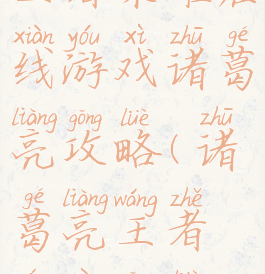 xiàn yóu xì zhū gé
线游戏诸葛
liàng gōng lüè zhū
亮攻略(诸
gé liàng wáng zhě
葛亮王者